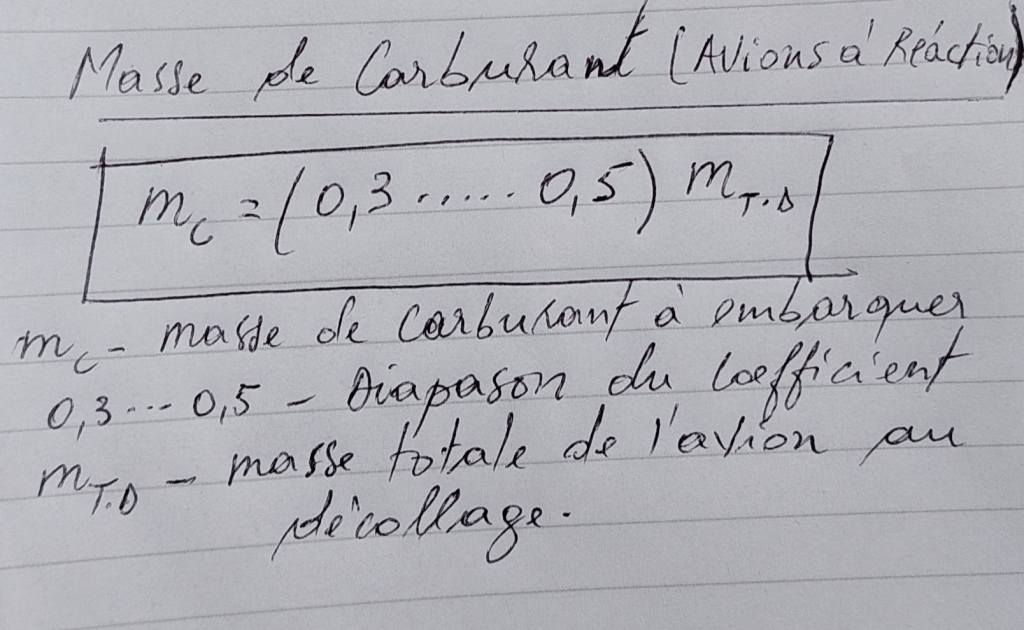 Masse de Carburant (Avions à Réaction)
m_C = (0,3 ..... 0,5) m_T.D
m_C - masse de carburant à embarquer
0,3 ... 0,5 - Diapason du coefficient
m_T.D - masse totale de l'avion au
décollage.